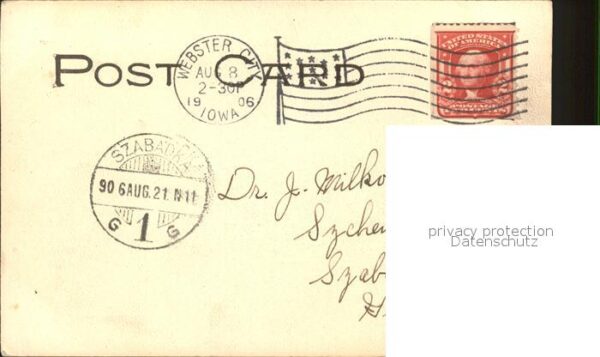 POST CARD
WEBSTER CITY
AUG 8
2-30P
1906
IOWA
UNITED STATES
OF AMERICA
POSTAGE
SZABADKA
906 AUG. 21. N11
G 1 G
Dr. J. Milko
privacy protection
Datenschutz